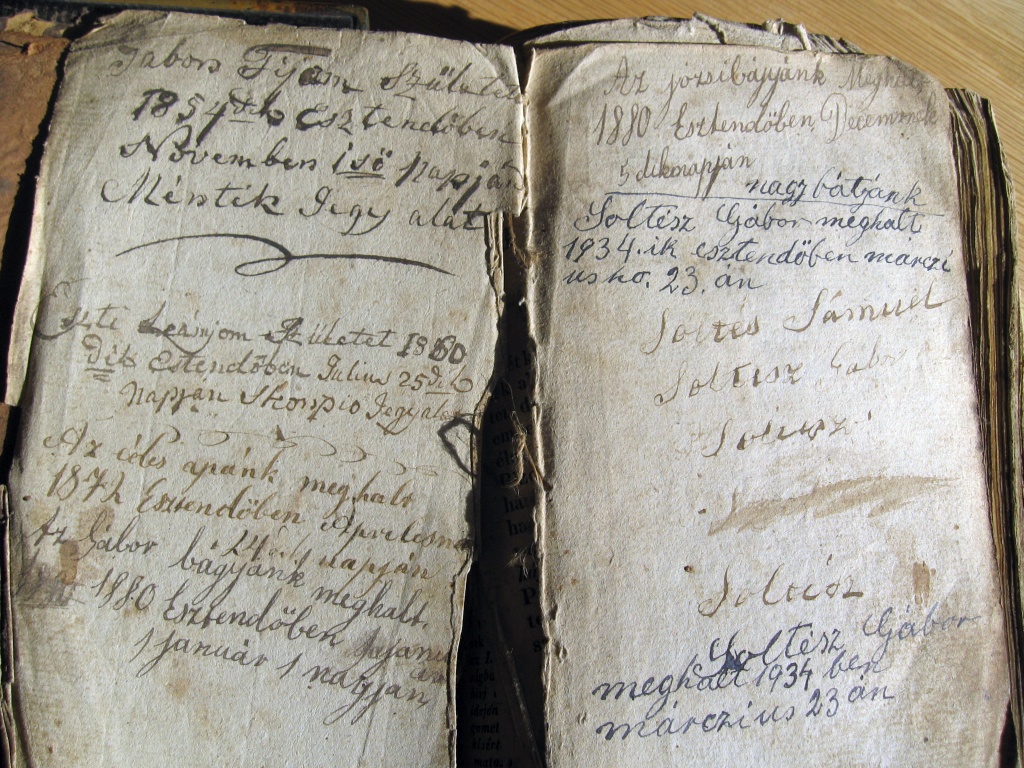 Gábors Fijam Született
1854dik Esztendőben
November 1ső Napján
Mérték Jegy alat
Születet 1860
Dik Estendőben Julius 25dik
Napján Skorpio Jegy alat
Az édes apánk meghalt
1872 Esztendőben Aprelesnek
24dik napján
Az Gábor bágyánk meghalt.
1880 Esztendőben
1 január 1 nagyján
Az józsibágyánk Meghalt
1880 Esztendőben, Decemrnek
5 dik napján
nagybátjánk
Soltész Gábor meghalt
1934.ik esztendőben márczi
us hó. 23. án
Soltés Sámuel
Soltész Gábor
Soltész
Soltész
Soltész Gábor
meghalt 1934 ben
márczius 23 án